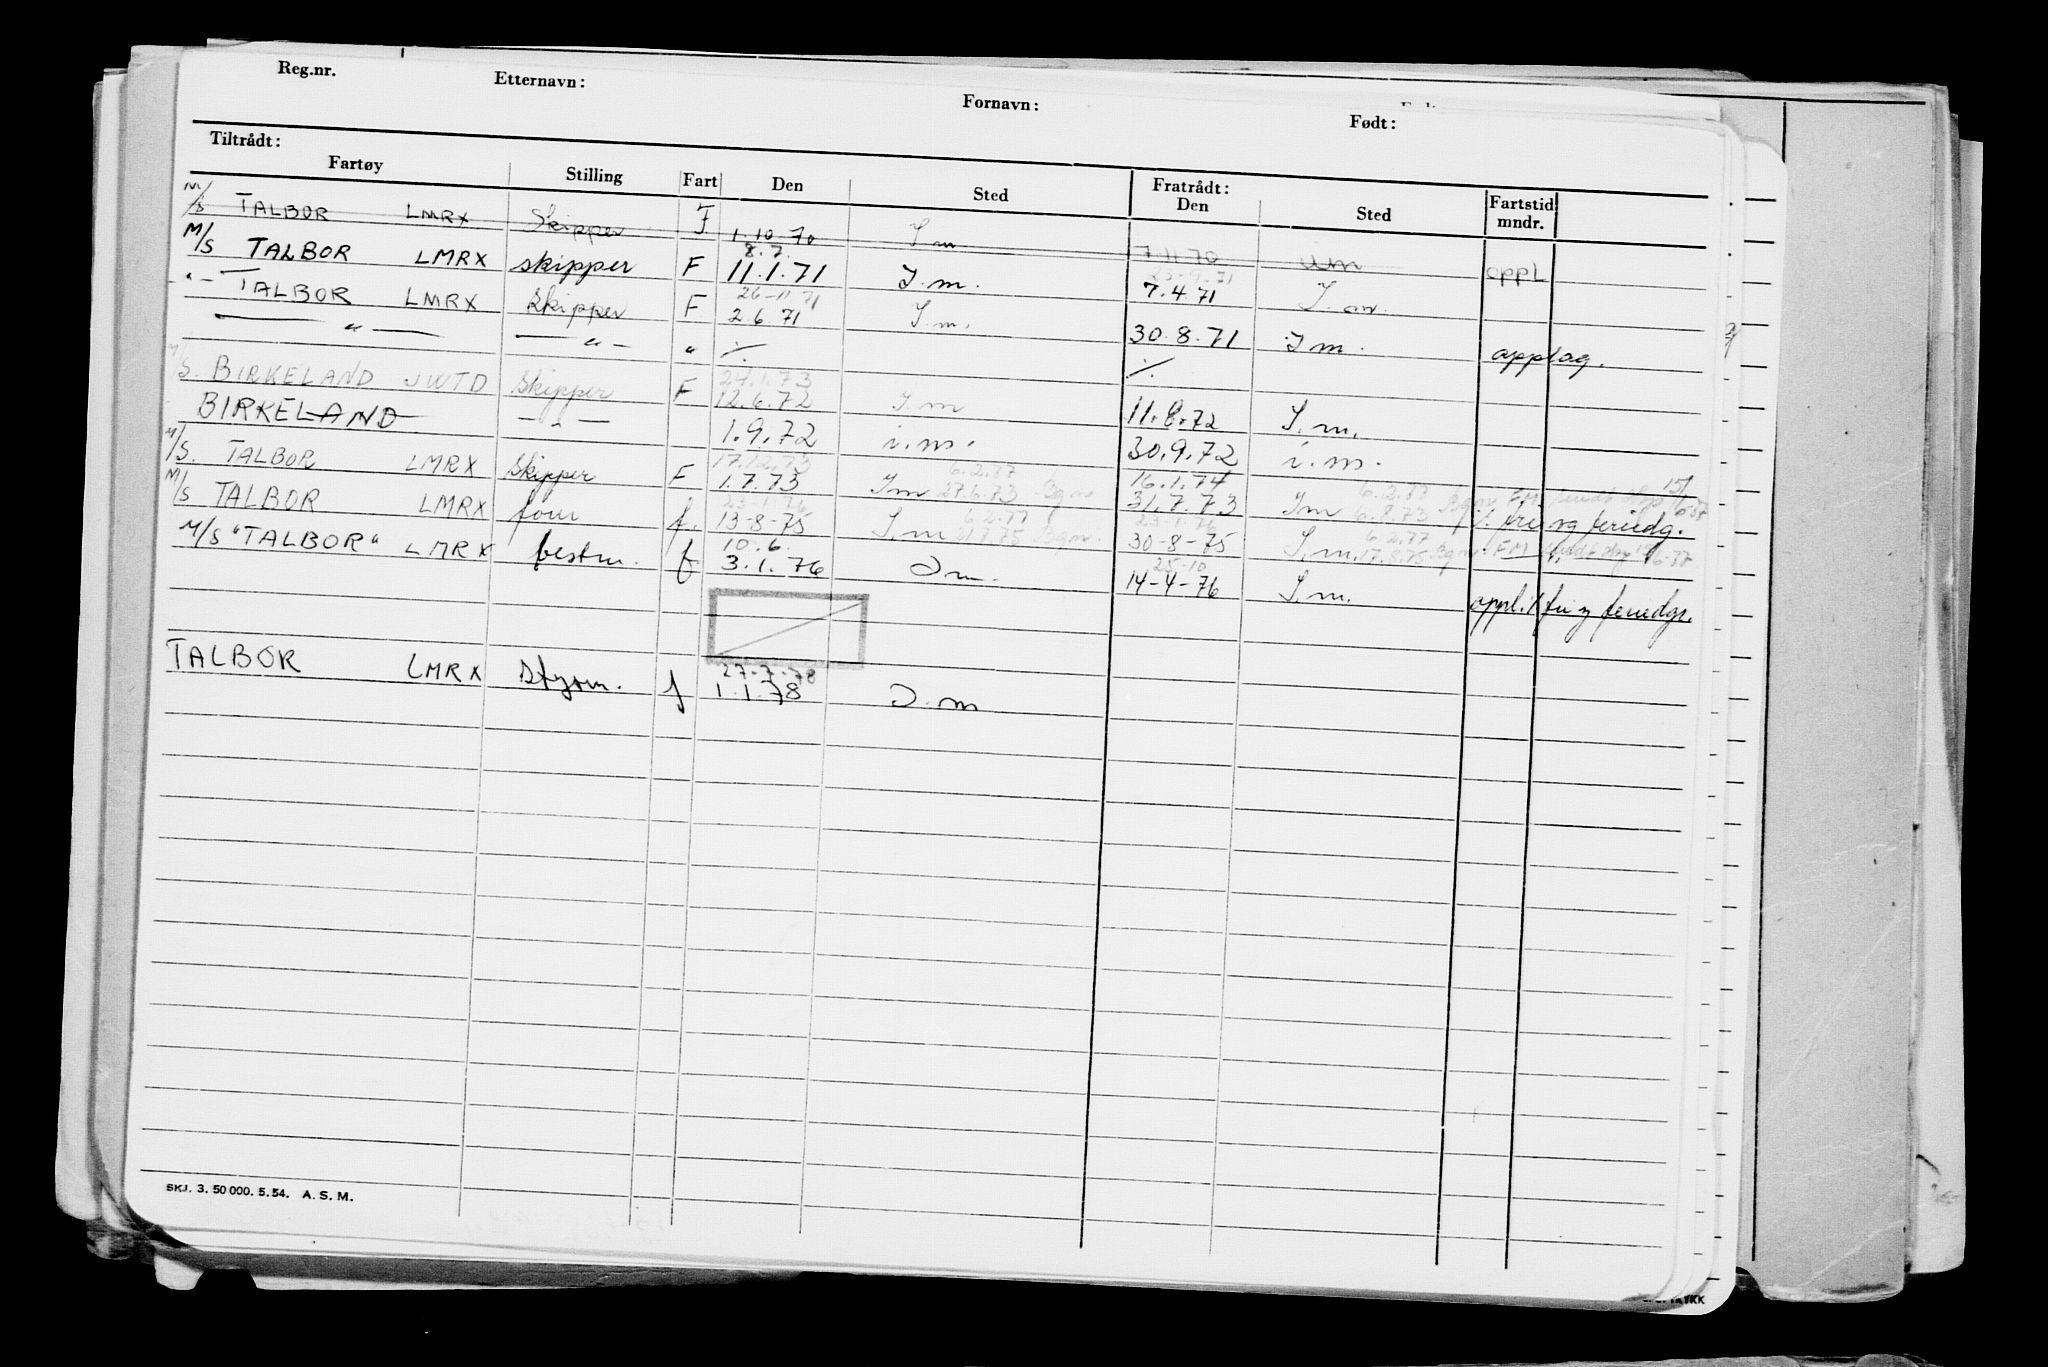 Reg.nr. Etternavn: Fornavn: Født:
Tiltrådt: Fratrådt:
Fartøy Stilling Fart Den Sted Den Sted Fartstid mndr.
M/S TALBOR LMRX Skipper F 1.10.70 I m 7.11.70
8.7. 23-9.71
M/S TALBOR LMRX skipper F 11.1.71 I.m. 7.4.71 I.m. oppl
26-11.71
" — TALBOR LMRX Skipper F 2.6 71 I.m. 30.8.71 I m. opplag.
— " — — " — " ./. ./.
24.1.73
M/S. BIRKELAND JWTD Skipper F 12.6.72 I.m 11.8.72 I.m.
BIRKELAND — " — 1.9.72 i.m. 30.9.72 i.m.
17.12.73 16.1.74
M/S. TALBOR LMRX Skipper F 1.7.73 I m 27.6.73 Bgn 31.7.73 I m 6.8.73 fri og feriedg.
23-1-76 23-1-76
M/S TALBOR LMRX f. 13-8-75 I.m 30-8-75 I.m. 17.8.75 Bg
10.6. 25-10
M/S "TALBOR" LMRX bestm. f 3.1.76 I m. 14-4-76 I.m. oppl. / fri og feriedgr.
27-7-78
TALBOR LMRX Styrm. f 1.1.78 I.m
SKJ. 3. 50 000. 5. 54. A. S. M.